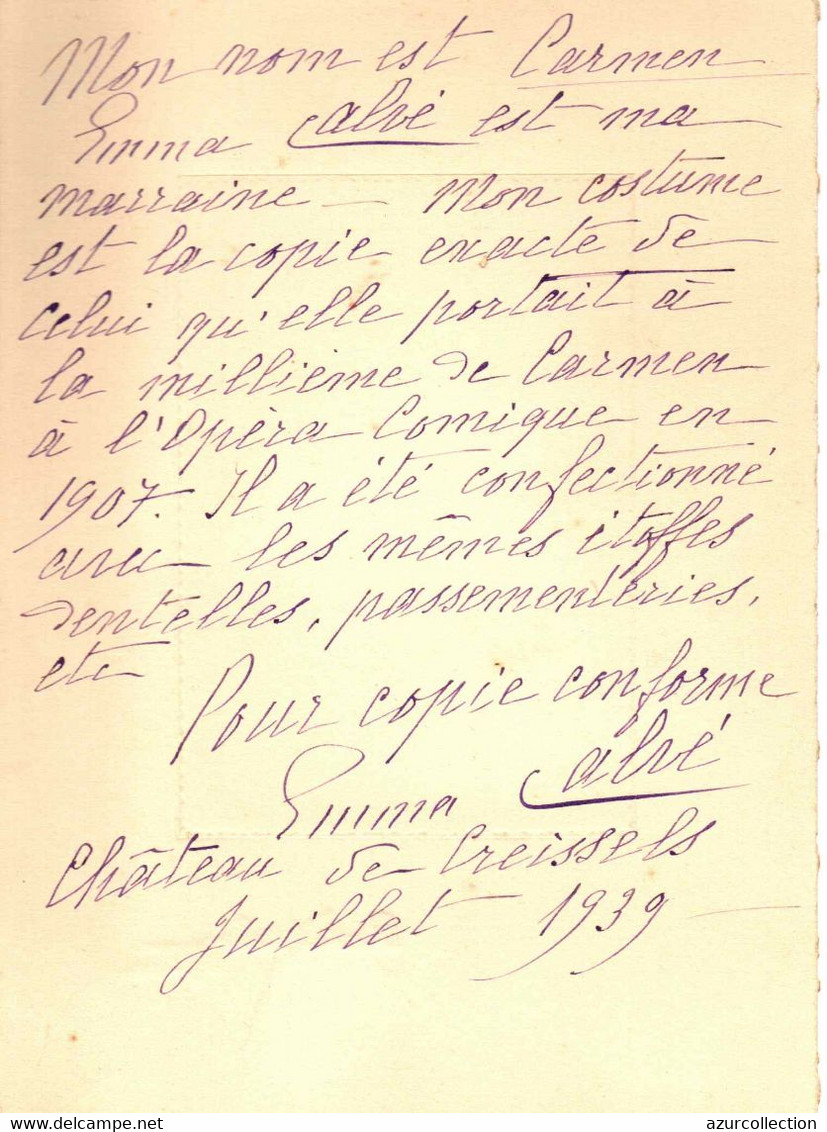 Mon nom est Carmen
Emma Calvé est ma
marraine — Mon costume
est la copie exacte de
celui qu'elle portait à
la millième de Carmen
à l'Opèra Comique en
1907. Il a été confectionné
avec les mêmes étoffes
dentelles, passementeries,
etc
Pour copie conforme
Emma Calvé
Château de Creissels
Juillet 1939 —
delcampe.net
azurcollection